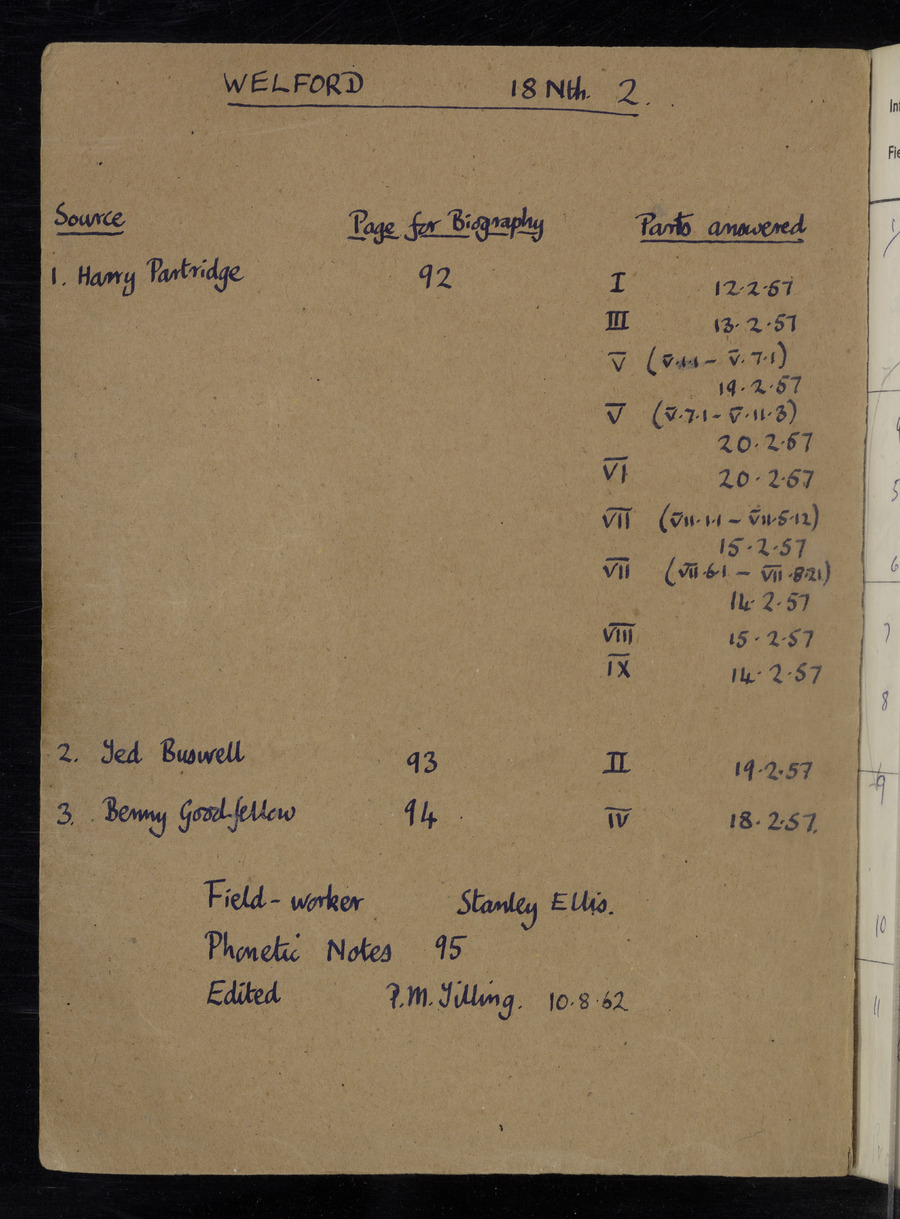 WELFORD 18 Nth. 2.
Source Page for Biography Parts answered
1. Harry Partridge 92 I 12.2.57
III 13.2.57
V (V.1.1 – V.7.1)
19.2.57
V (V.7.1 – V.11.3)
20.2.57
VI 20.2.57
VII (VII.1.1 – VII.5.12)
15.2.57
VII (VII.6.1 – VII.8.21)
14.2.57
VIII 15.2.57
IX 14.2.57
2. Ted Buswell 93 II 19.2.57
3. Benny Goodfellow 94 IV 18.2.57.
Field-worker Stanley Ellis.
Phonetic Notes 95
Edited P.M. Tilling. 10.8.62
5
6
7
8
9
10
11